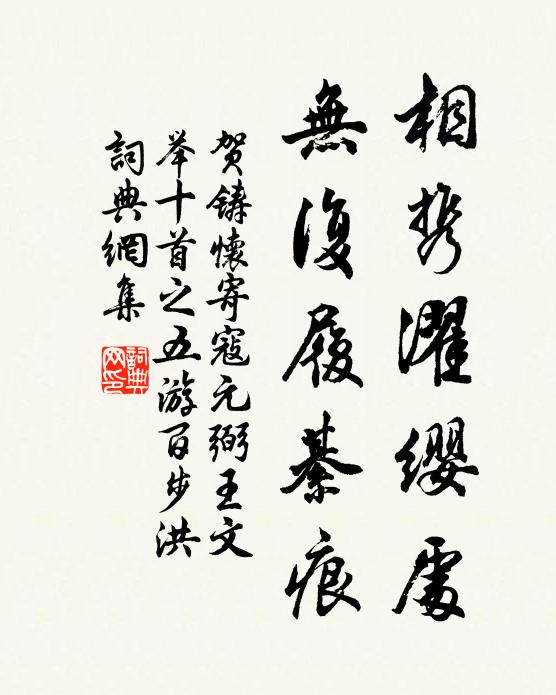 相携濯缨處
無復履綦痕
贺铸懷寄寇元弼王文
举十首之五游百步洪
詞典網集
詞典網印